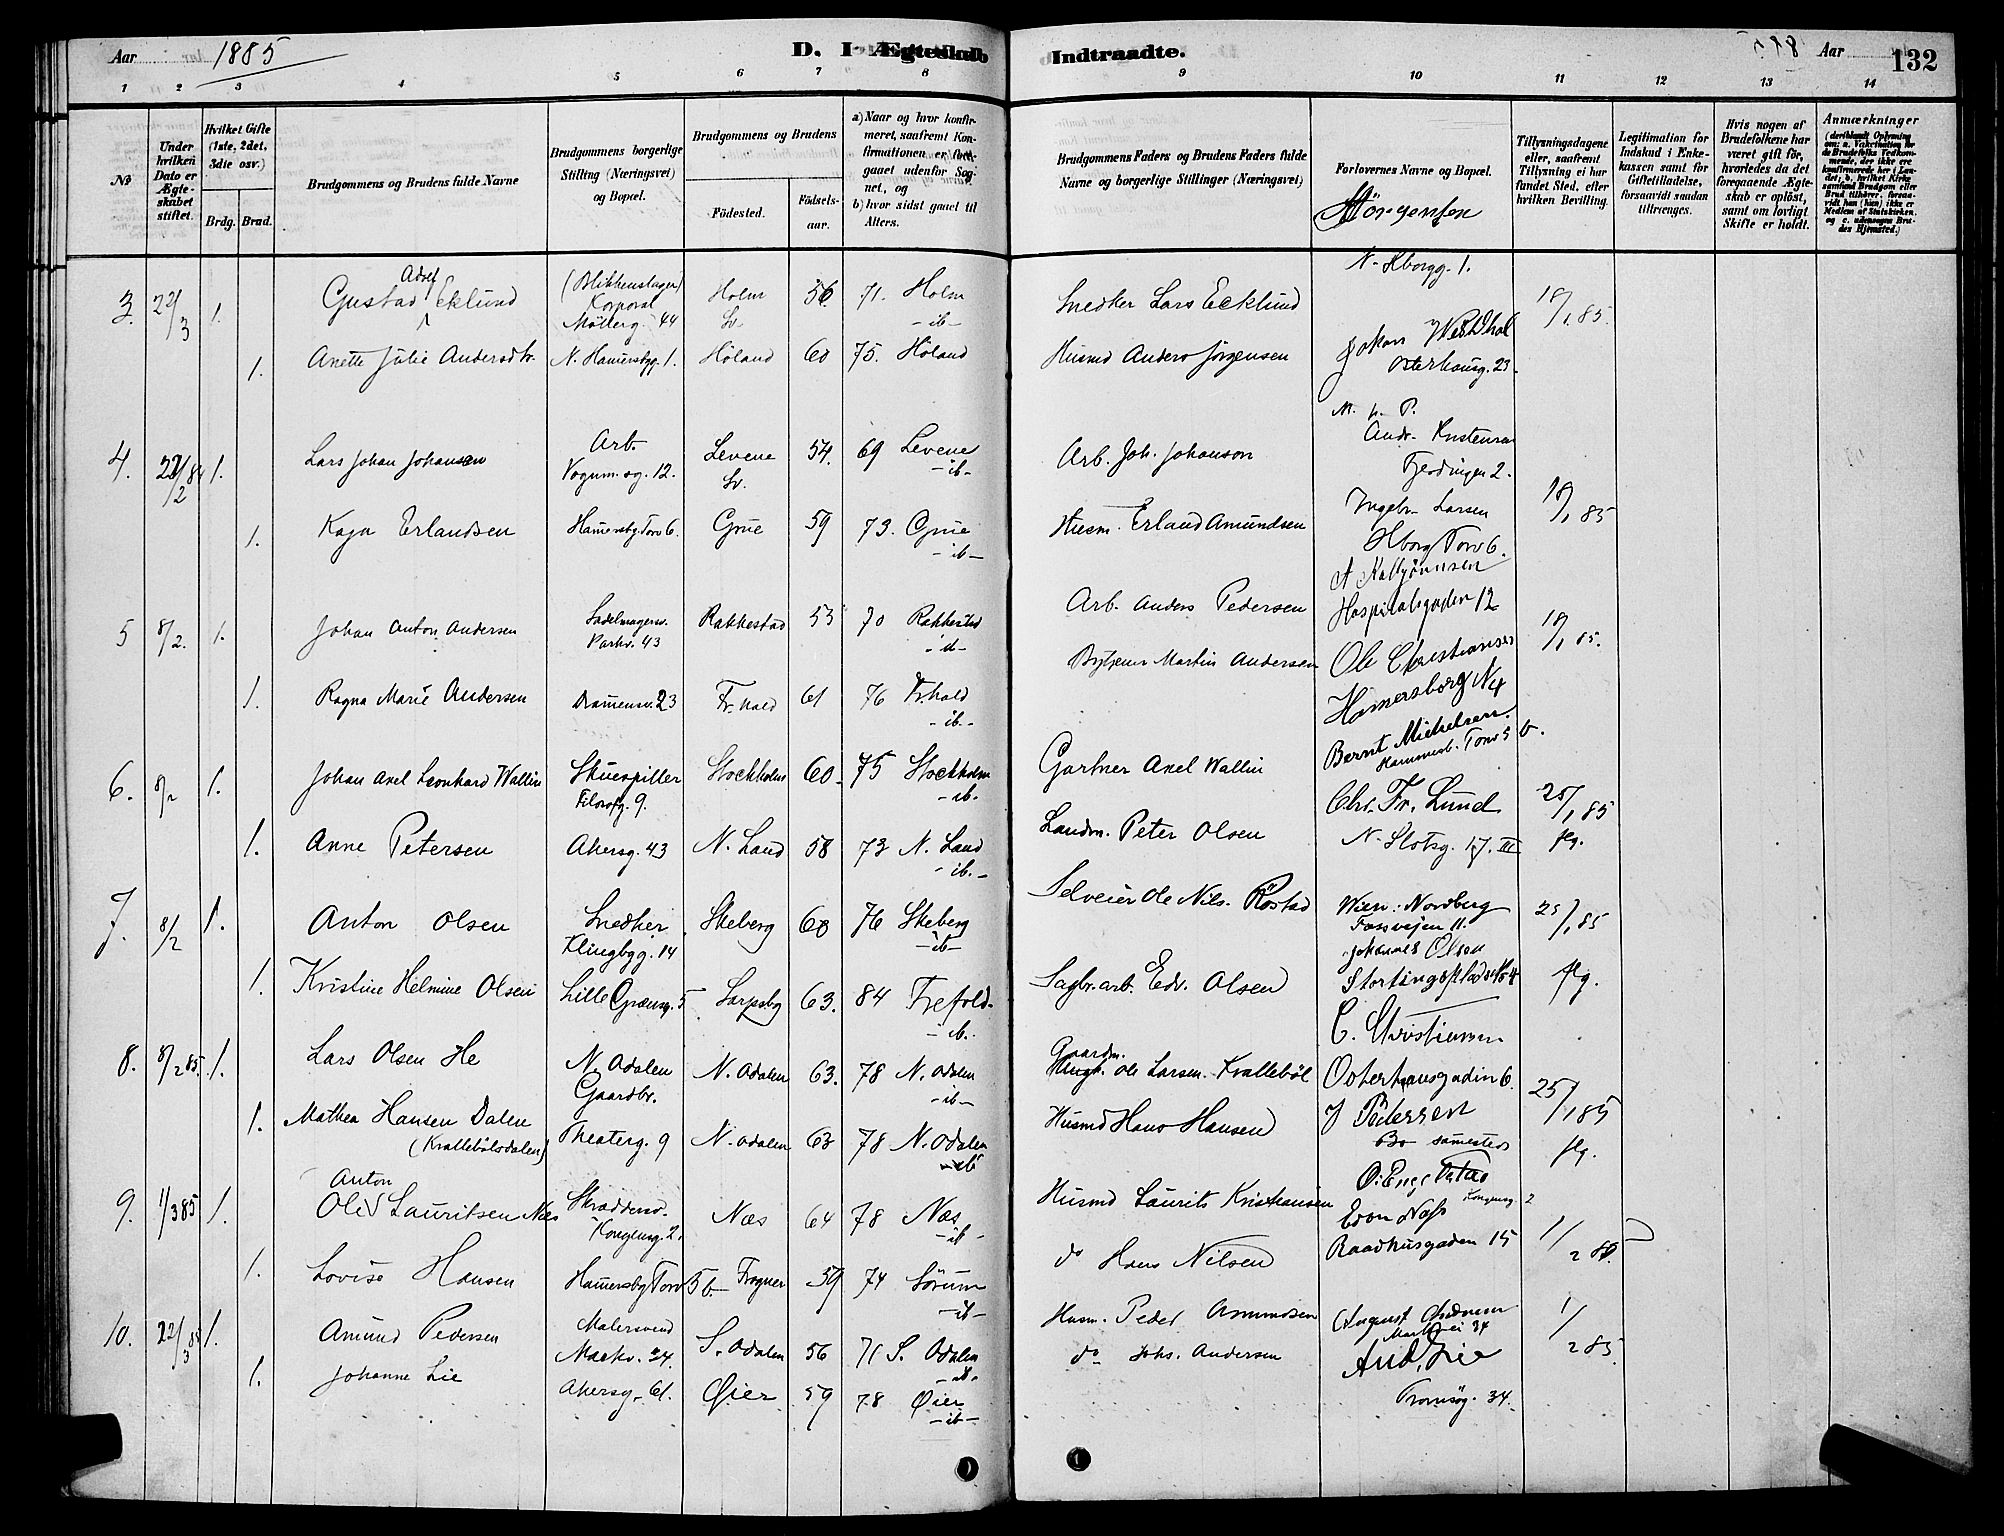 Aar 1885
D. I Ægteskab
Indtraadte.
Aar
132
1 2 3 4 5 6 7 8 9 10 11 12 13 14
No
Under hvilken Dato er Ægteskabet stiftet.
Hvilket Gifte (1ste, 2det, 3die osv.)
Brdg. Brud.
Brudgommens og Brudens fulde Navne
Brudgommens borgerlige Stilling (Næringsvei) og Bopæl.
Brudgommens og Brudens
Födested.
Födselsaar.
a) Naar og hvor konfirmeret, saafremt Konfirmationen er foregaaet udenfor Sognet, og
b) hvor sidst gaaet til Alters.
Brudgommens Faders og Brudens Faders fulde Navne og borgerlige Stillinger (Næringsvei)
Forlovernes Navne og Bopæl.
Tillysningsdagene eller, saafremt Tillysning ei har fundet Sted, efter hvilken Bevilling.
Legitimation for Indskud i Enkekassen samt for Giftetilladelse, forsaavidt saadan tiltrænges.
Hvis nogen af Brudefolkene har været gift för, hvorledes da det foregaaende Ægteskab er oplöst, samt om lovligt Skifte er holdt.
Anmærkninger
(deriblandt Oplysning om: a. Vakcination for de Brudefolks Vedkommende, der ikke ere konfirmerede her i Landet; b. hvilket Kirkesamfund Brudgom eller Brud tilhører, forsaavidt han (hun) ikke er Medlem af Statskirken, og c. udensogns Brudes Hjemsted.)
Jörgensen
N. Hborgg. 1.
3. 22/3 1. Gustad Adolf Eklund (Blikkenslager) Korporal Möllerg. 44 Holm Sv. 56 71. Holm -ib- Snedker Lars Ecklund 18/1 85.
1. Anette Julie Andersdtr. N. Hamersbgg. 1. Höland 60 75. Höland Husmd Anders Jörgensen Johan Westdhal Osterhausg. 23.
4. 22/2 84 1. Lars Johan Johansen Arb. Vognm.sg. 12. Levene Sv. 54. 69 Levene -ib- Arb. Joh. Johanson Andr. Kristensen Fjerdingen 2.
1. Kaja Erlandsen Hamersbg. Torv 6. Grue 59 73. Grue -ib- Husm. Erland Amundsen Ingebr. Larsen Hborg Torv 6. 18/1 85
5 8/2. 1. Johan Anton Andersen Sadelmagersv. Parkv. 43 Rakkestad 53 70 Rakkestad -ib- Arb. Anders Pedersen Hospitalsgaden 12 18/1 85.
1. Ragna Marie Andersen Dramensv. 23 Fr.hald 61 76 Fr.hald -ib- Martin Andersen Ole Christiansen Hamersborg N4
6. 8/2 1. Johan Axel Leonhard Wallin Skuespiller Filosofg. 9. Stockholm 60 75 Stockholm -ib. Gartner Axel Wallin Bernt Michelsen Hammersb. Torv 5 b.
1. Anne Petersen Akersg. 43 N. Land 58 73 N. Land -ib.- Landm. Peter Olsen Chr. Fr. Lund N. Slotsg. 17. III 25/1 85 flg.
7. 8/2 1. Anton Olsen Snedker Klingbgg. 14 Skeberg 60 76 Skeberg -ib- Selveier Ole Nils. Röstad Wilh. Nordberg Fossvejen 11. 25/1 85
1. Kristine Helmine Olsen Lille Grænsg. 5 Sarpsbg 63. 84 Trefold. -ib. Sagbr.arb. Edv. Olsen Johannes Olsen Stortingsplads No 4 flg.
8. 8/2 85. 1. Lars Olsen He N. Odalen Gaardbr. N. Odalen 63. 78 N. Odalen -ib- Gaardm. Ole Larsen Kralleböl C. Christiansen Osterhausgaden 6.
1. Mathea Hansen Dalen (Krallebölsdalen) Theaterg. 9 N. Odalen 63 78 N. Odalen -ib- Husmd Hans Hansen J Pedersen Bo samesteds 25/1 85 flg.
9. 1/3 85 1. Ole Anton Lauritsen Næs Skræddersv. Kongensg. 2. Næs 64 78 Næs -ib- Husmd Laurits Kristiansen O. Engestad Kongensg. 2
1. Lovise Hansen Hamersbg Torv 5 b. Frogner 59 74 Sörum -ib- do Hans Nilsen Edon Næss Raadhusgaden 15 1/2 85.
10. 22/3 85 1. Amund Pedersen Malersvend Markv. 34. S. Odalen 56 71 S. Odalen -ib- Husm. Peder Ammundsen August Andersen Markvei 34 1/2 85.
1. Johanne Lie Akersg. 61. Öier 59 78 Öier -ib- do Johs. Andersen And. Lie Tromsög. 34.